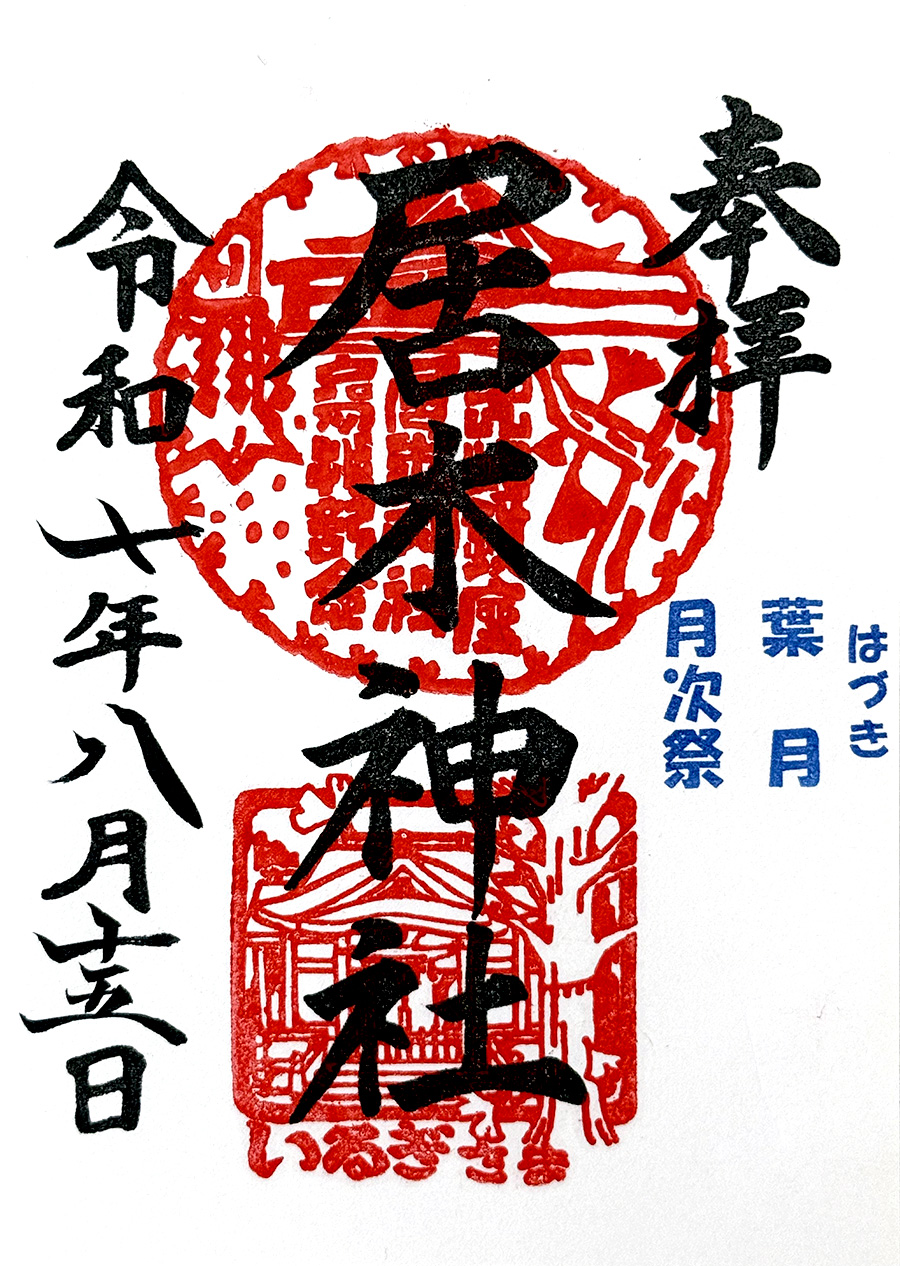 奉拝
はづき
葉月
月次祭
居木神社
いるぎさま
令和十年八月十五日